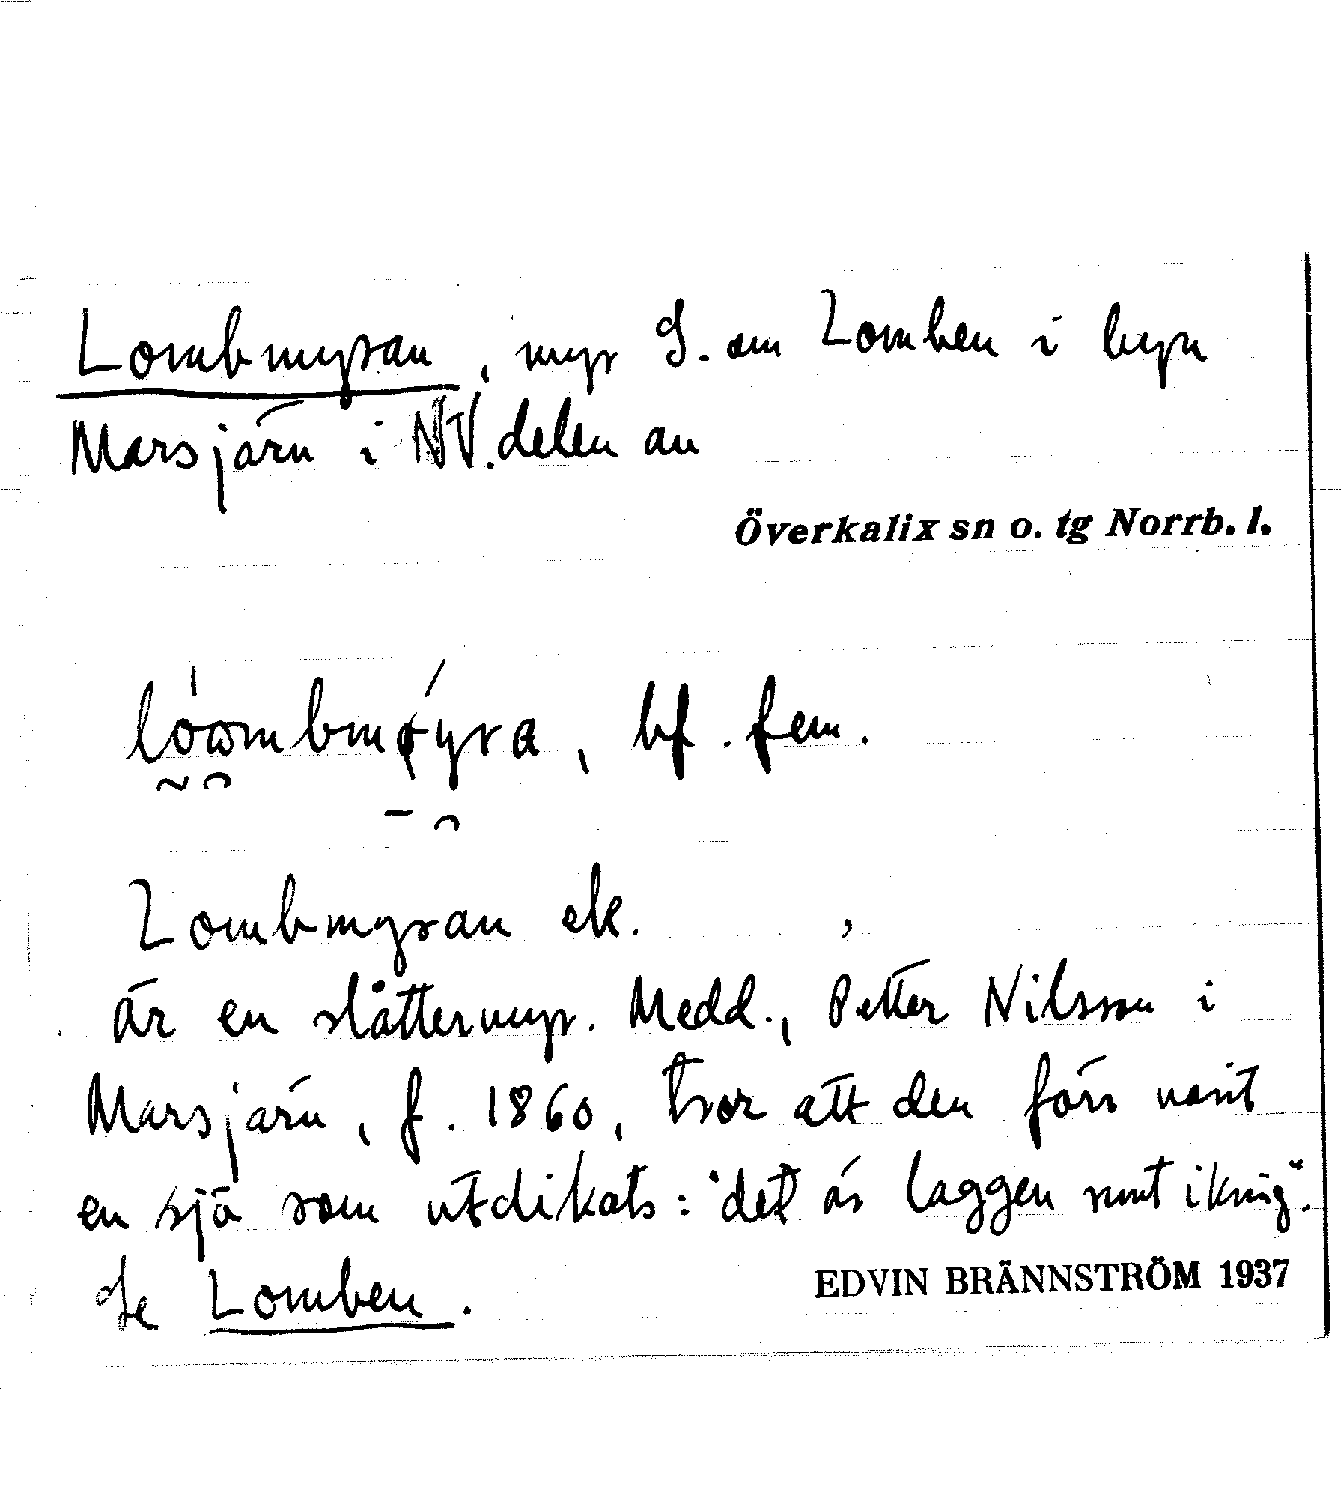 Lombmyran, myr S. om Lomben i byn
Marsjärn i NV.delen av
Överkalix sn o. tg Norrb. l.
bf. fem.
Lombmyran ek.
är en slåttermyr. Medd., Petter Nilsson i
Marsjärn, f. 1860, tror att den förr varit
en sjö som utdikats: "det är laggen runt ikring".
Se Lomben.
EDVIN BRÄNNSTRÖM 1937